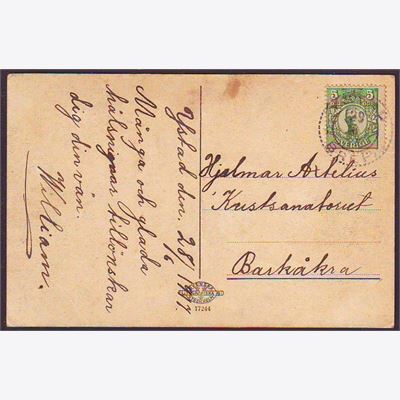 Ystad den. 28/6 1911
Många och glada
hälsningar tillönskar
dig din vän.
William.
5 5
SVERIGE
29
Hjelmar Axtelius
Kustsanatoriet
Barkåkra
17244